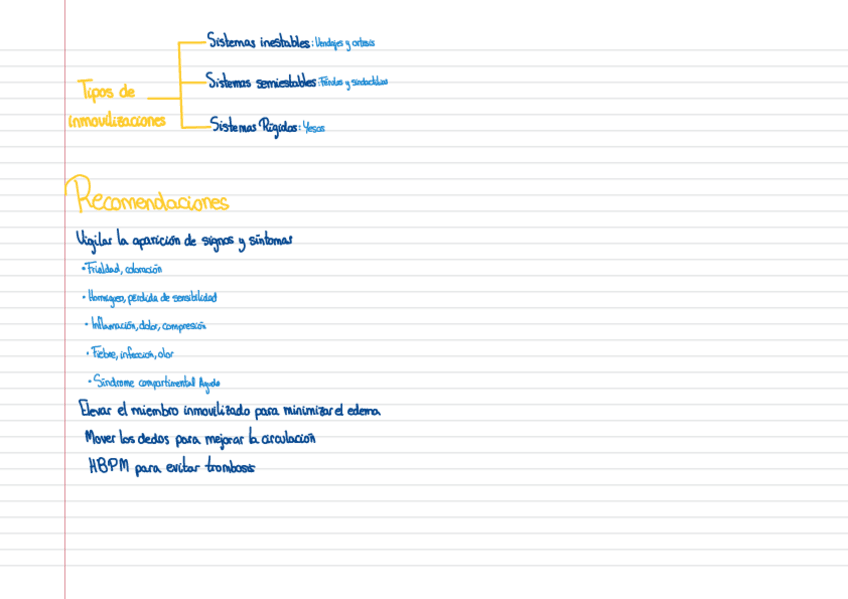 Sistemas inestables: Vendajes y ortesis
Tipos de inmovilizaciones
Sistemas semiestables: Férulas y sindactilias
Sistemas Rígidos: Yesos
Recomendaciones
Vigilar la aparición de signos y síntomas
• Frialdad, coloración
• Hormigueo, pérdida de sensibilidad
• Inflamación, dolor, compresión
• Fiebre, infección, olor
• Síndrome compartimental Agudo
Elevar el miembro inmovilizado para minimizar el edema
Mover los dedos para mejorar la circulación
HBPM para evitar trombosis